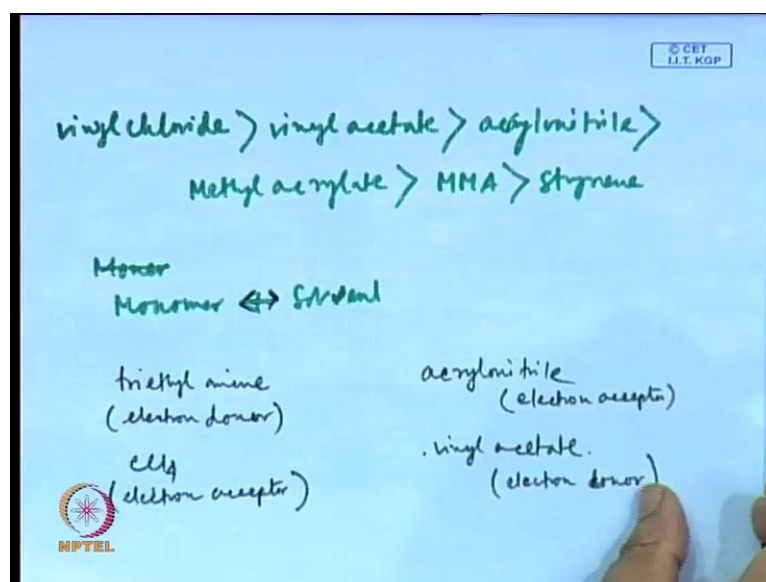 © CET
I.I.T. KGP
vinyl chloride > vinyl acetate > acrylonitrile >
Methyl acrylate > MMA > Styrene
Monor
Monomer ↔ Solvent
triethyl amine
(electron donor)
CCl4
(electron acceptor)
acrylonitrile
(electron acceptor)
. vinyl acetate.
(electron donor)
NPTEL